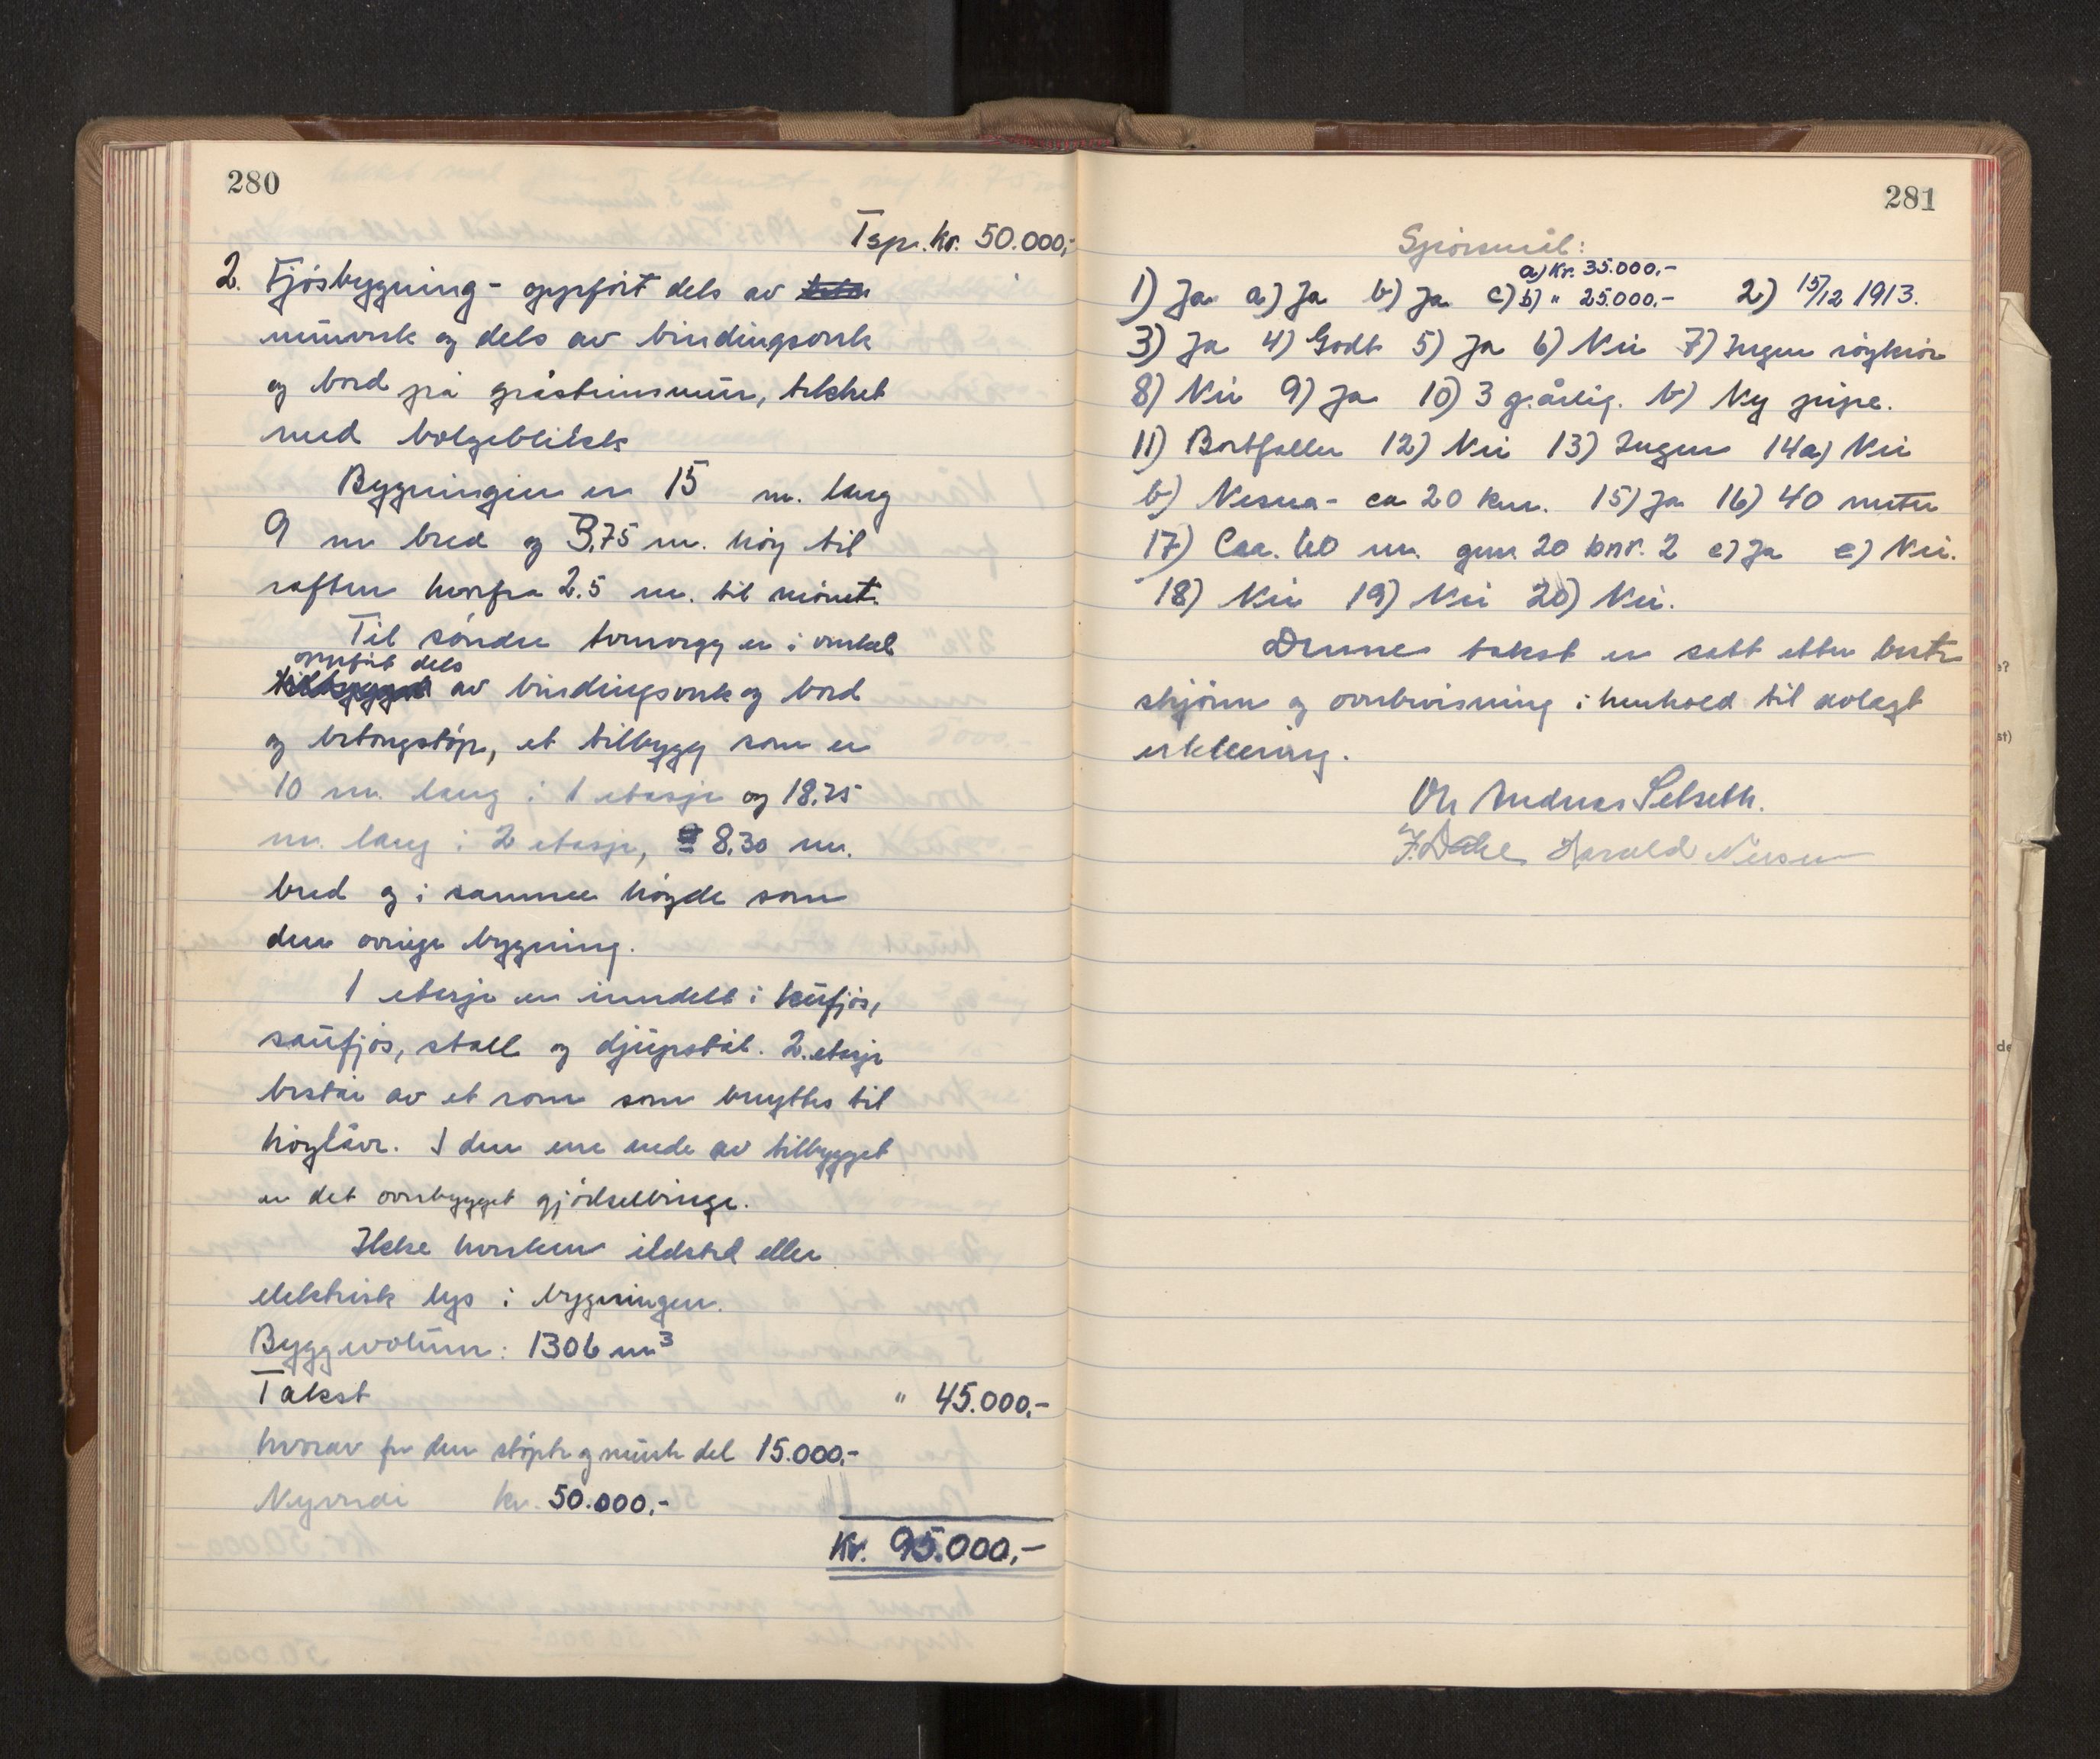 280
Tspr. kr. 50.000,-
2. Fjósbygning - oppfört dels av
murverk og dels av bindingsverk
og bord på gråsteinsmur, tekket
med bølgeblikk
Bygningen er 15 m. lang
9 m bred og 3,75 m. høy til
raften hvorfra 2.5 m. til mönet.
Til söndre tverrvegg er i vinkel
oppfört dels
av bindingsverk og bord
og betongstöp, et tilbygg som er
10 m. lang i 1 etasje og 18,75
m. lang i 2 etasje, 8,30 m.
bred og i samme höyde som
den övrige bygning.
1 etasje er inndelt i kufjös,
saufjös, stall og djupstål. 2. etasje
består av et rom som benyttes til
höylåve. I den ene ende av tilbygget
er det overbygget gjödselbinge.
Ikke hverken ildsted eller
elektrisk lys i bygningen.
Byggevolum: 1306 m³
Takst " 45.000,-
hvorav for den stöpte og murte del 15.000,-
Nyverdi kr. 50.000,-
Kr. 95.000,-
281
Spörsmål:
a) Kr. 35.000,-
1) Ja a) Ja b) Ja c) b) " 25.000,- 2) 15/12 1913.
3) Ja 4) Godt 5) Ja 6) Nei 7) Ingen
8) Nei 9) Ja 10) 3 g. årlig. b) Ny pipe.
11) Bortfaller 12) Nei 13) Ingen 14a) Nei
b) Nesna - ca 20 km. 15) Ja 16) 40 meter
17) Caa. 60 m. gnr. 20 bnr. 2 c) Ja e) Nei.
18) Nei 19) Nei 20) Nei.
Denne takst er satt etter beste
skjönn og overbevisning i henhold til avlagt
erklæring.
Andreas Selseth.
F. Dahl Harald